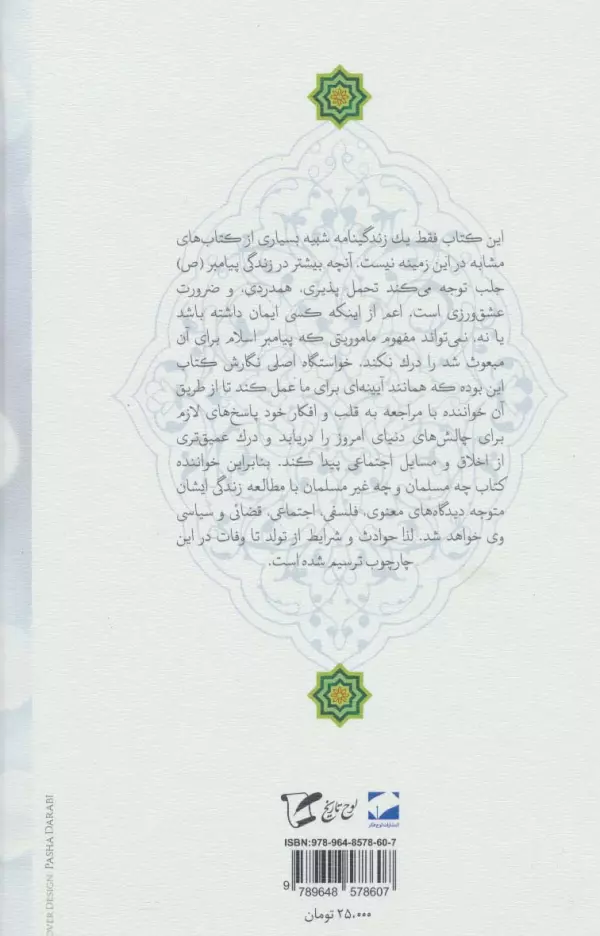 این کتاب فقط یك زندگینامه شبیه بسیاری از کتاب‌های
مشابه در این زمینه نیست. آنچه بیشتر در زندگی پیامبر (ص)
جلب توجه می‌کند تحمل پذیری، همدردی، و ضرورت
عشق‌ورزی است. اعم از اینکه کسی ایمان داشته باشد
یا نه، نمی‌تواند مفهوم ماموریتی که پیامبر اسلام برای آن
مبعوث شد را درك نکند. خواستگاه اصلی نگارش کتاب
این بوده که همانند آیینه‌ای برای ما عمل کند تا از طریق
آن خواننده با مراجعه به قلب و افکار خود پاسخ‌های لازم
برای چالش‌های دنیای امروز را دریابد و درك عمیق‌تری
از اخلاق و مسایل اجتماعی پیدا کند. بنابراین خواننده
کتاب چه مسلمان و چه غیر مسلمان با مطالعه زندگی ایشان
متوجه دیدگاه‌های معنوی، فلسفی، اجتماعی، قضائی و سیاسی
وی خواهد شد. لذا حوادث و شرایط از تولد تا وفات در این
چارچوب ترسیم شده است.
لوح تاریخ
انتشارات لوح فکر
ISBN:978-964-8578-60-7
9 789648 578607
۲۵،۰۰۰ تومان
OVER DESIGN: PASHA DARABI